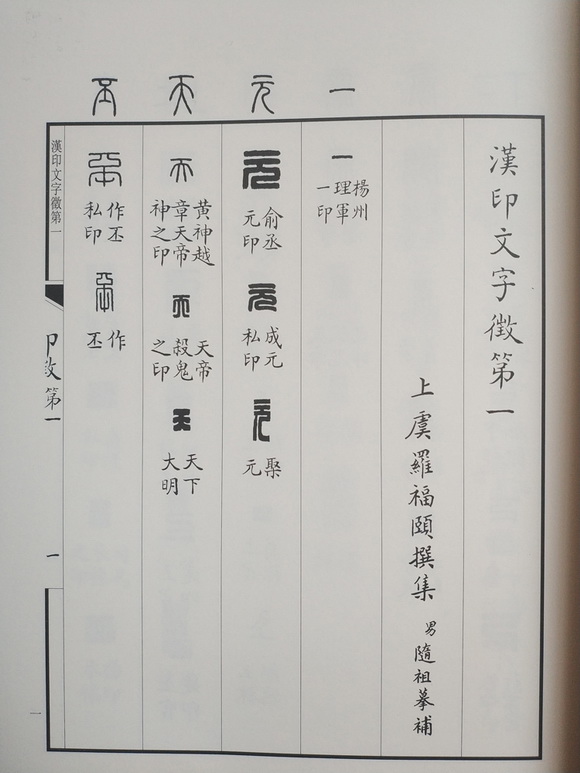 漢印文字徵第一
上虞羅福頤撰集 男 隨祖摹補
一
一
楊州
理軍
一印
元
元
俞丞
元印
元
成元
私印
元
聚
元
天
天
黄神越
章天帝
神之印
天
天帝
殺鬼
之印
天
天下
大明
丕
丕
作丕
私印
丕
作
丕
漢印文字徵第一
印徵第一
一
一